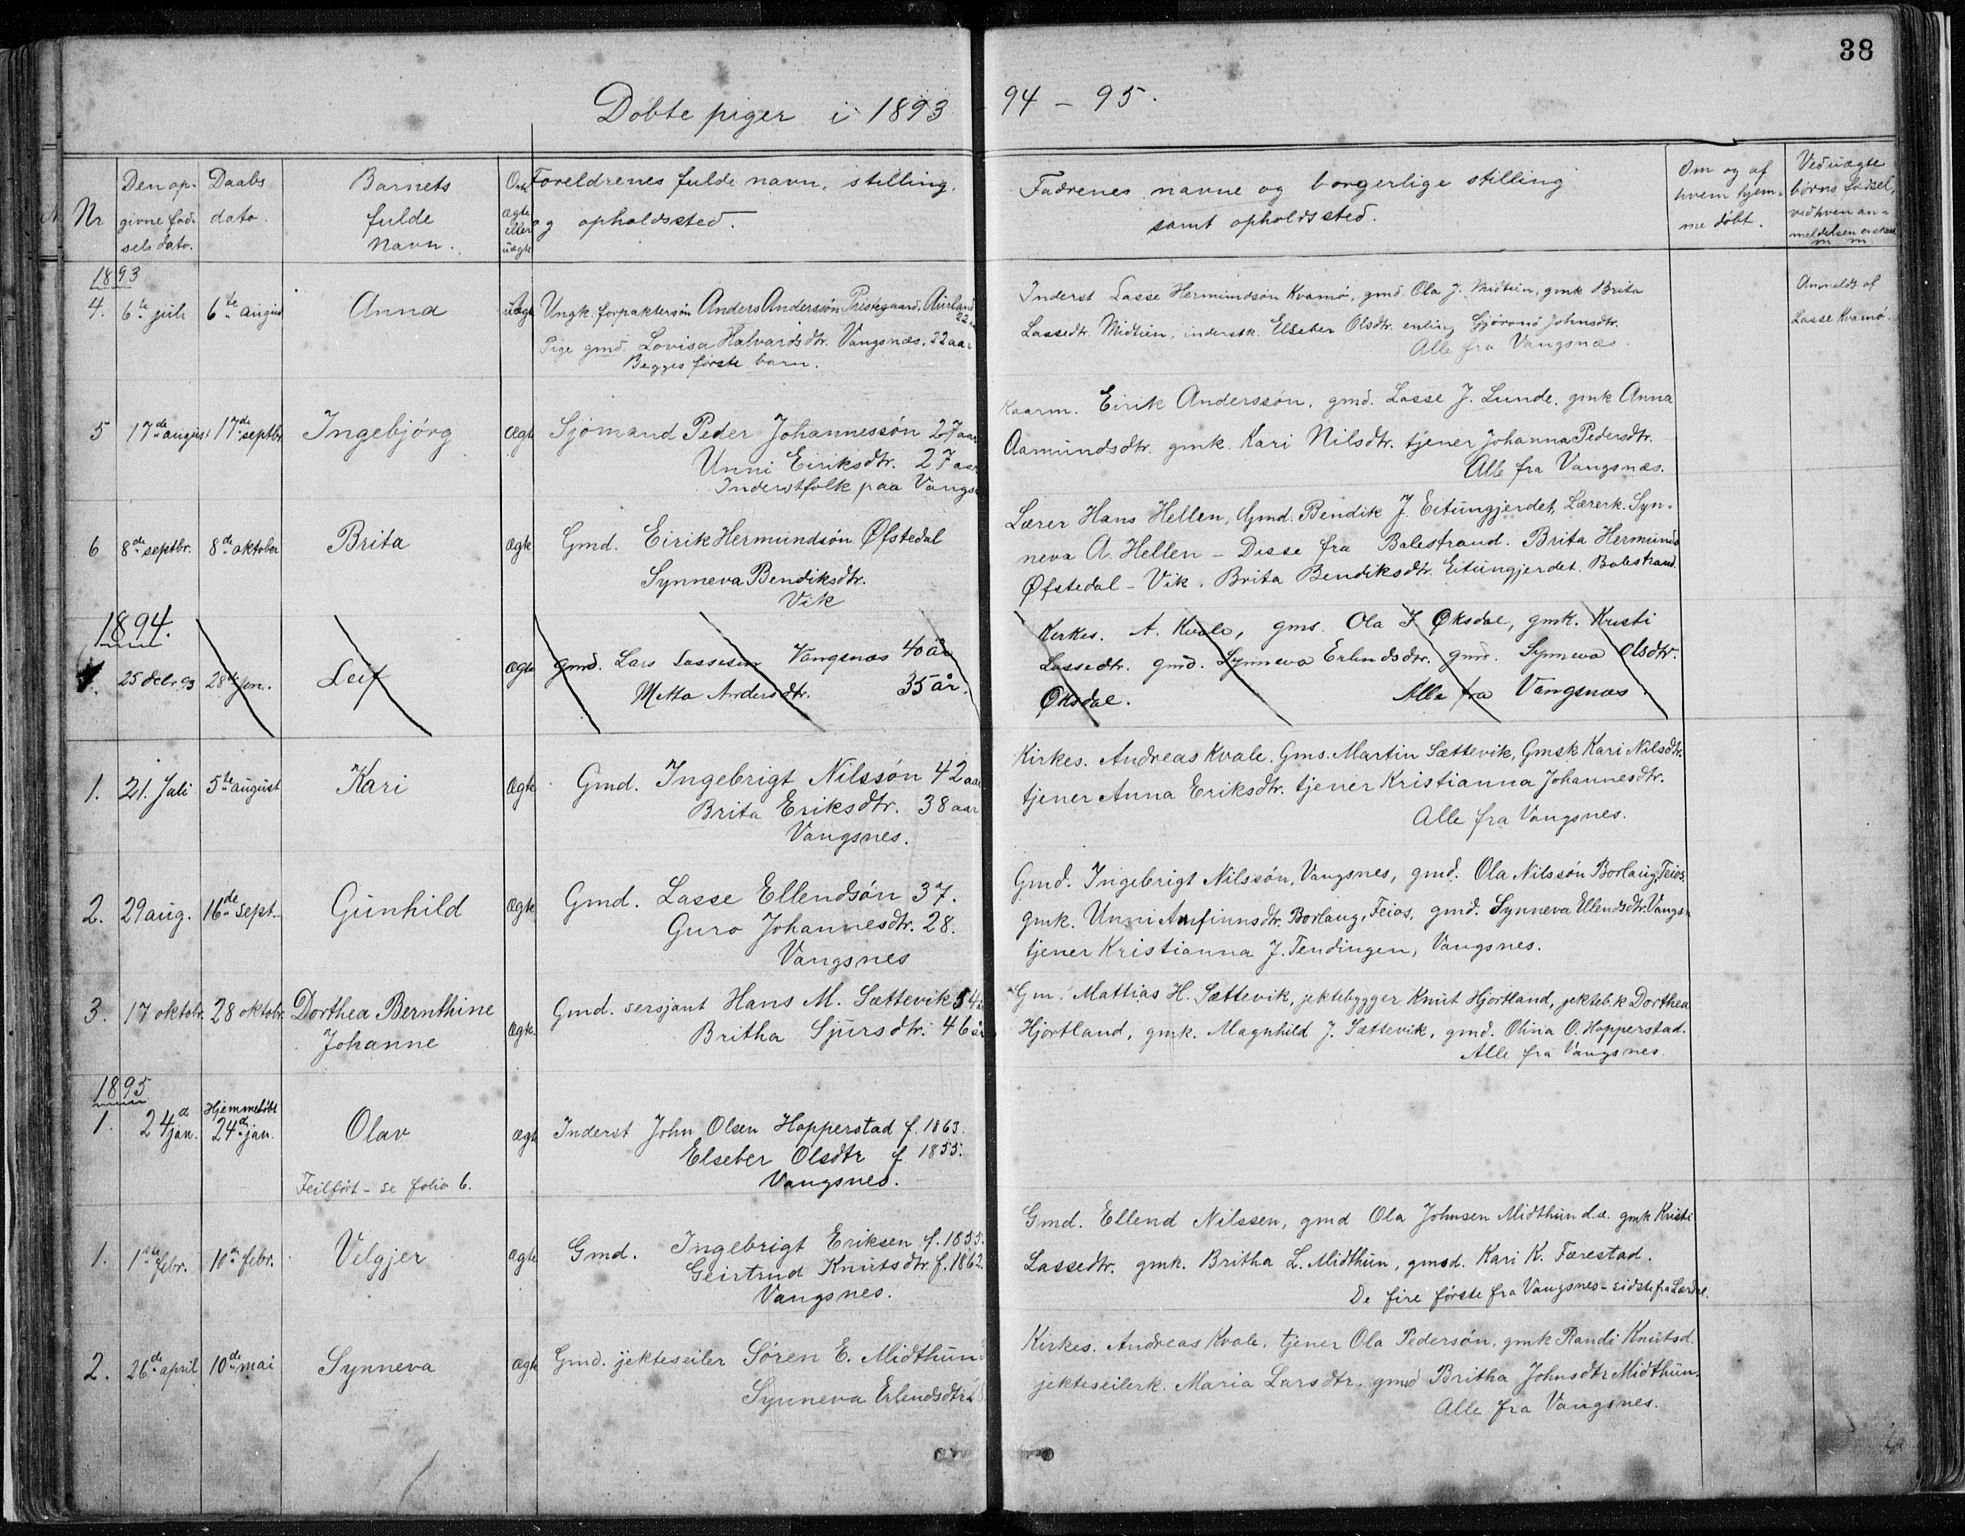 38
Døbte piger i 1893 94 - 95.
Nr
Den op-
givne fød-
sels dato.
Daabs
dato.
Barnets
fulde
Navn.
Om
ægte
eller
uægte
Foreldrenes fulde navn, stilling,
og opholdssted.
Fadrenes navne og borgerlige stilling
samt opholdssted.
Om og af
hvem hjem-
me døbt.
Ved uægte
børns fødsel,
ved hvem an-
meldelsen er skeet
m m.
1893
4. 6te juli 6te august Anna uægte Ungk. forpaktersøn Anders Anderssøn Prestegaard, Aurland 22
Pige gmd. Lovisa Halvardsdtr. Vangsnæs, 22 aar
Begges første barn.
Inderst Lasse Hermundsøn Kvamø, gmd. Ola J. Midtun, gmk Brita
Lassedtr. Midtun, inderstk. Elseber Olsdtr. enling Gjørond Johnsdtr.
Alle fra Vangsnæs.
Anmeldt af
Lasse Kvamø.
5 17de august 17de septbr Ingebjórg Ægte Sjómand Peder Johannessón 27 aar
Unni Eiriksdtr. 27 aar
Inderstfolk paa Vangs
Kaarm. Eirik Anderssón, gmd. Lasse J. Lunde, gmk Anna
Aamundsdtr. gmk. Kari Nilsdtr. tjener Johanna Pedersdtr.
Alle fra Vangsnæs.
6 8de septbr. 8de oktober Brita ægte Gmd. Eirik Hermundsón Øfstedal
Synneva Bendiksdtr.
Vik
Lærer Hans Hellen, Gmd. Bendik J. Eitungjerdet, Lærerk. Syn-
neva A. Hellen - Disse fra Balestrand. Brita Hermunds
Øfstedal - Vik. Brita Bendiksdtr. Eitungjerdet. Balestrand.
1894.
25 debr. 93 28de jan. Leif ægte gmd. Lars Lassesen Vangsnæs 40 år
Metta Andersdtr. 35 år.
Kirkes. A. Kvale, gms. Ola I Øksdal, gmk. Kristi
Lassedtr. gmd. Synneva Erlendsdtr. gmd. Synneva Olsdtr.
Øksdal. Alle fra Vangsnæs.
1. 21. Juli 5te august Kari Ægte Gmd. Ingebrigt Nilssón 42 aar
Brita Eriksdtr. 38 aar
Vangsnes.
Kirkes. Andreas Kvale. Gms. Martin Sættevik, Gmsk Kari Nilsdtr.
tjener Anna Eriksdtr. tjener Kristianna Johannesdtr.
Alle fra Vangsnes.
2. 29 aug. 16de sept. Gunhild Ægte Gmd. Lasse Ellendsón 37.
Guro Johannesdtr. 28.
Vangsnes
Gmd. Ingebrigt Nilssón, Vangsnes, gmd. Ola Nilssón Borlaug, Feios,
gmk. Unni Anfinnsdtr. Borlaug, Feios, gmd. Synneva Ellendsdtr. Vangs
tjener Kristianna J. Tendingen, Vangsnes.
3. 17 oktobr. 28 oktobr. Dorthea Bernthine
Johanne Ægte. Gmd. sersjant Hans M. Sættevik 54
Britha Sjursdtr. 46 år
Gm. Mattias H. Sættevik, jektebygger Knut Hjortland, jekteb.k Dorthea
Hjortland, gmk. Magnhild J. Sættevik, gmd. Olina O. Hopperstad.
Alle fra Vangsnes.
1895
1. 24d jan. Hjemmedøbt
24d jan. Olav ægte Inderst John Olsen Hopperstad f. 1863.
Elseber Olsdtr f. 1855.
Vangsnes.
Feilført - se folio 6.
1. 1ste febr. 10de febr. Velgjer ægte Gmd. Ingebrigt Eriksen f. 1855.
Geirtrud Knutsdtr. f. 1862.
Vangsnes.
Gmd. Ellend Nilssen, gmd Ola Johnsen Midthun d.æ. gmk Kristi
Lassedtr. gmk. Britha L. Midthun, gmsd. Kari K. Færestad.
De fire første fra Vangsnes - sidste fra Lærdal.
2. 26de april 10de mai Synneva ægte Gmd. jekteseiler Søren E. Midthun
Synneva Erlendsdtr
Kirkes. Andreas Kvale, tjener Ola Pedersón, gmk Randi Knutsd.
jekteseilerk. Maria Larsdtr. gmd Britha Johnsdtr Midthun.
Alle fra Vangsnes.